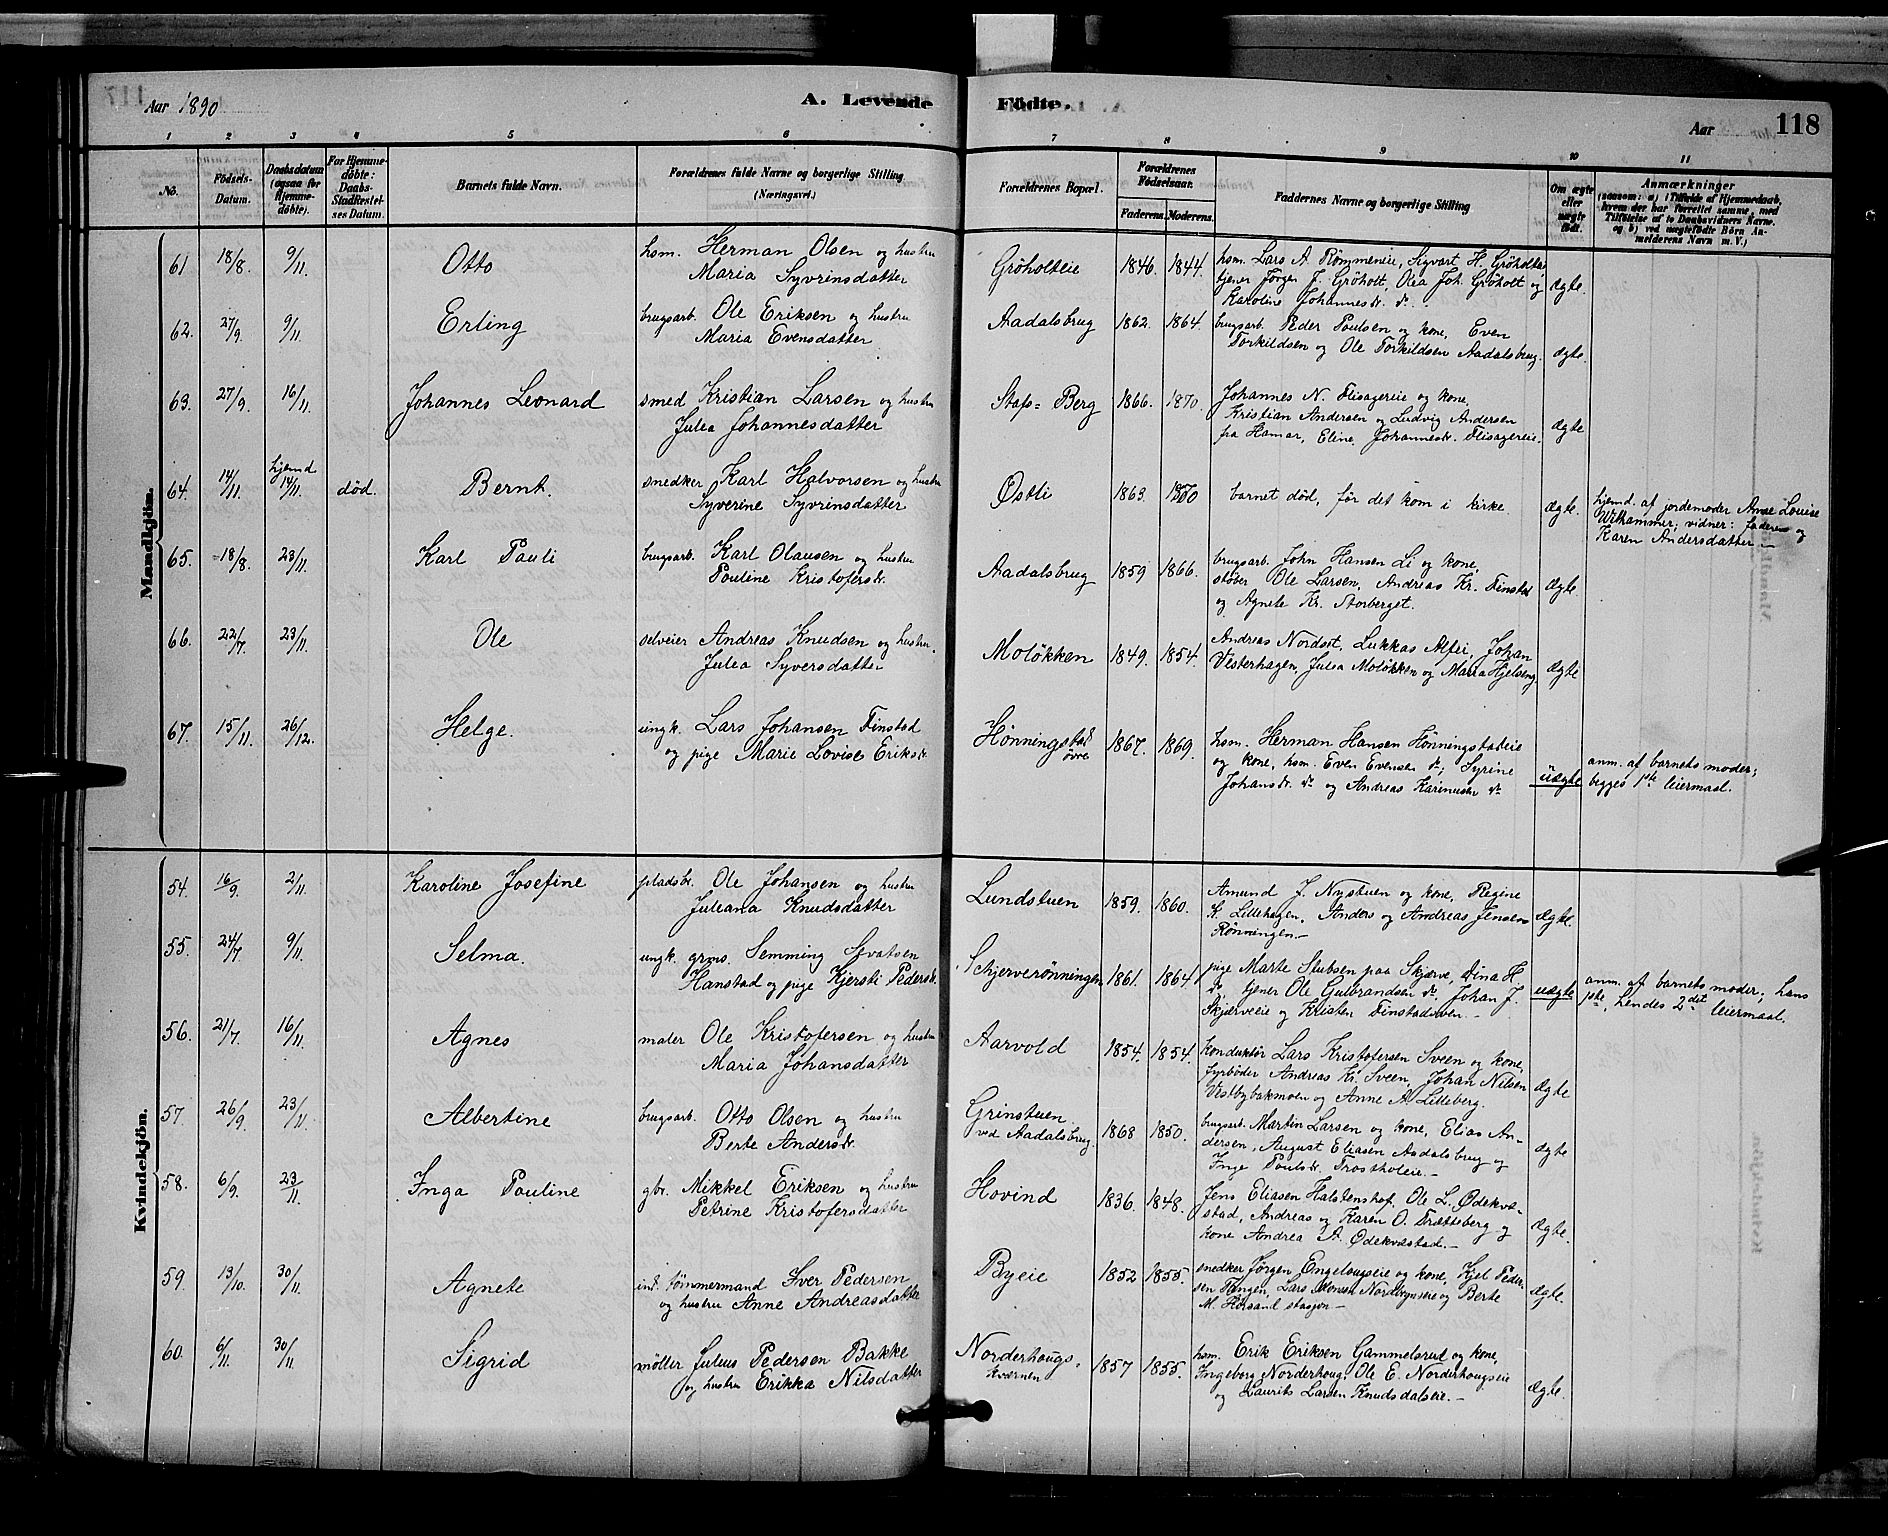 Aar 1890
A. Levende Födte.
Aar 118
1 2 3 4 5 6 7 8 9 10 11
No.
Födsels-Datum.
Daabsdatum (ogsaa for Hjemmedöbte).
For Hjemmedöbte: Daabs-Stadfæstelses Datum.
Barnets fulde Navn.
Forældrenes fulde Navne og borgerlige Stilling (Næringsvei.)
Forældrenes Bopæl.
Forældrenes Födselsaar. Faderens. Moderens.
Faddernes Navne og borgerlige Stilling
Om ægte eller uægte födt.
Anmærkninger
(saasom: a) i Tilfælde af Hjemmedaab, hvem der har forrettet samme, med Tilföielse af to Daabsvidners Navne. og b) ved uægtefödte Börn Anmelderens Navn m. V.)
Mandkjön.
61 18/8. 9/11. Otto
hsm. Herman Olsen og hustru
Maria Syvrinsdatter
Gröholteie 1846. 1844.
hsm. Lars A. Römmeneie, Sigvart H. Gröholteie
tjener Jörgen J. Gröholt, Olea Joh. Gröholt og
Karoline Johannesdr. do.
ægte.
62. 27/9. 9/11. Erling
brugsarb. Ole Eriksen og hustru
Maria Evensdatter
Aadalsbrug 1862. 1864.
brugsarb. Peder Poulsen og kone, Even
Torkildsen og Ole Torkildsen Aadalsbrug.
ægte.
63. 27/9. 16/11. Johannes Leonard
smed Kristian Larsen og hustru
Julea Johannesdatter
Stafs-Berg 1866. 1870.
Johannes N. Flisagereie og kone,
Kristian Andersen og Ludvig Andersen
fra Hamar, Eline Johannesdr. Flisagereie.
ægte
64. 14/11. hjemd 14/11. död. Bernt.
snedker Karl Halvorsen og hustru
Syverine Syvrinsdatter
Østli 1863. 1870
barnet död, för det kom i kirke
ægte.
hjemd. af jordemoder Anne Louise
Withammer; vidner: faderen og
Karen Andersdatter
65. 18/8. 23/11. Karl Pauli
brugsarb. Karl Olausen og hustru
Pouline Kristofersdr.
Aadalsbrug 1859 1866.
brugsarb. John Hansen Li og kone,
stöber Ole Larsen, Andreas Kr. Finstad
og Agnete Kr. Storberget.
ægte
66. 22/7. 23/11. Ole
selveier Andreas Knudsen og hustru
Julea Syversdatter
Molökken 1849. 1854.
Andreas Nordset, Lukkas Alfei, Johan
Vesterhagen, Julea Molökken og Maria Hjelseng
ægte
67. 15/11. 26/12. Helge.
ungk. Lars Johansen Finstad
og pige Marie Lovise Eriksdr.
Hönningstad övre 1867. 1869.
hsm. Herman Hansen Hönningstadeie
og kone, hsm. Even Evensen do, Syrine
Johansdr. do og Andreas Karinusen do
uægte
anm. af barnets moder;
begges 1ste leiermaal.
Kvindekjön.
54. 16/9. 2/11. Karoline Josefine
pladsbr. Ole Johansen og hustru
Juleana Knudsdatter
Lundstuen 1859. 1860.
Amund J. Nystuen og kone, Regine
K. Lillehagen, Anders og Andreas Jensen
Rönningen.
ægte.
55. 24/7. 9/11. Selma.
ungk. grms. Semming Sevatsen
Hanstad og pige Kjersti Pedersdr.
Schjerverönningen 1861. 1864
pige Marte Stubsen paa Skjærve, Dina H.
do, tjener Ole Gulbrandsen do, Johan J.
Skjærveeie og Kristen Finstadsven.
uægte
anm. af barnets moder; hans
1ste, hendes 2det leiermaal.
56. 21/7. 16/11. Agnes
maler Ole Kristofersen og hustru
Maria Johansdatter
Aarvold 1854. 1854.
konduktör Lars Kristofersen Sveen og kone,
fyrböder Andreas Kr. Sveen, Johan Nilsen
Vestbybakmoen og Anne A. Lilleberg.
ægte
57. 26/9. 23/11. Albertine
brugsarb. Otto Olsen og hustru
Berte Andersdr.
Grinstuen ved Aadalsbrug 1868 1850.
brugsarb. Martin Larsen og kone, Elias An-
dersen, August Eliasen Aadalsbrug og
Inge Poulsdr. Trostholeie.
ægte
58. 6/9. 23/11. Inga Pouline
gbr. Mikkel Eriksen og hustru
Petrine Kristofersdatter
Hovind 1836. 1848.
Jens Eliasen Halstenshof, Ole L. Ødekvæ-
stad, Andreas og Karen O. Trætteberg og
kone Andrea A. Ødekvæstad.
ægte.
59. 13/10. 30/11. Agnete
ind. tömmermand Iver Pedersen
og hustru Anne Andreasdatter
Byeie 1852 1855.
snedker Jörgen Engelaugseie og kone, Kjel Peder-
sen Tangen, Lars Nordbyseie og Berte
M. Hörsand stasjon
ægte.
60. 6/11. 30/11. Sigrid
möller Julius Pedersen Bakke
og hustru Erikka Nilsdatter
Norderhougs-kværnen 1857 1855.
hsm. Erik Eriksen Gammelsrud og kone,
Ingeborg Norderhoug, Ole E. Norderhougseie
og Laurits Larsen Knudsdalseie.
ægte.